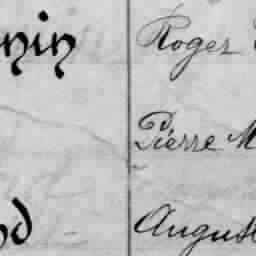 nin Roger
Pierre M
nd August